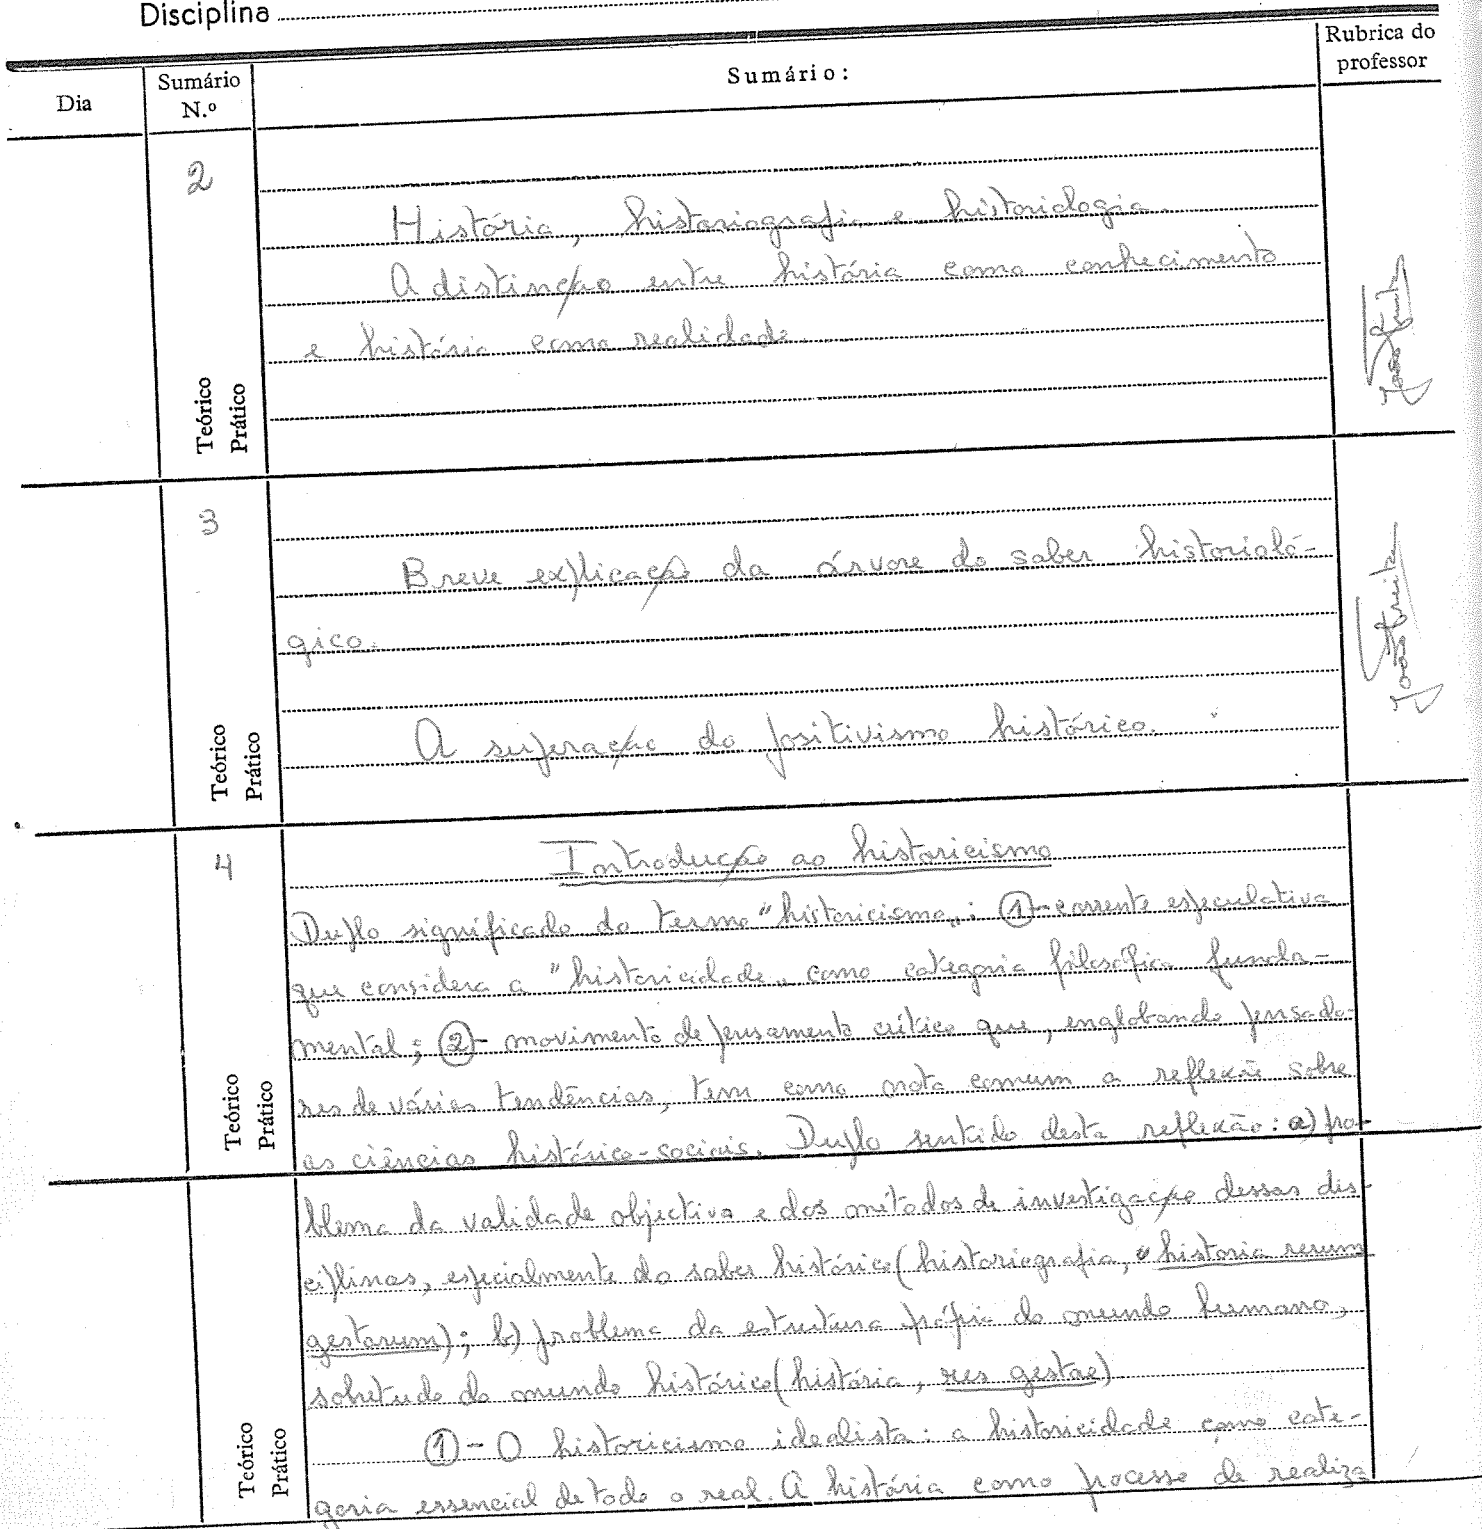 Disciplina
Dia
Sumário N.º
Sumário:
Rubrica do professor
2
História, historiografia e historiologia.
A distinção entre história como conhecimento
e história como realidade.
Teórico
Prático
João Freitas
3
Breve explicação da árvore do saber historioló-
gico.
A superação do positivismo histórico.
Teórico
Prático
João Freitas
4
Introdução ao historicismo
Duplo significado do termo "historicismo": ①- corrente especulativa
que considera a "historicidade" como categoria filosófica funda-
mental; ②- movimento de pensamento crítico que, englobando pensado-
res de várias tendências, tem como nota comum a reflexão sobre
as ciências histórico-sociais. Duplo sentido desta reflexão: a) pro-
Teórico
Prático
blema da validade objectiva e dos métodos de investigação dessas dis-
ciplinas, especialmente do saber histórico (historiografia, "historia rerum
gestarum); b) problema da estrutura própria do mundo humano,
sobretudo do mundo histórico (história, res gestae)
①- O historicismo idealista: a historicidade como cate-
goria essencial de todo o real. A história como processo de realiza
Teórico
Prático